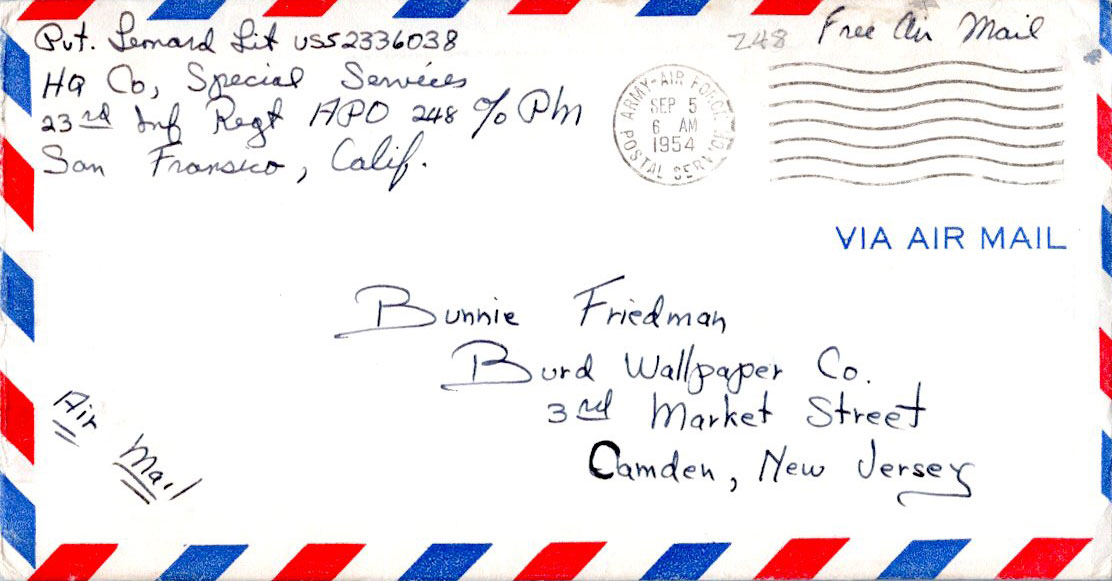 Pvt. Leonard Lit US52336038
HQ Co, Special Services
23rd Inf Regt APO 248 c/o PM
San Fransico, Calif.
248
Free Air Mail
ARMY-AIR FORCE
SEP 5
6 AM
1954
POSTAL SERVICE
VIA AIR MAIL
Bunnie Friedman
Burd Wallpaper Co.
3rd Market Street
Camden, New Jersey
Air Mail